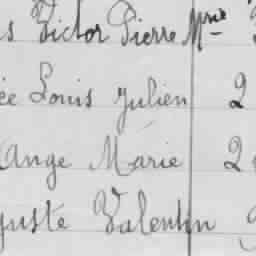 s Victor Pierre Mrie
ée Louis Julien 2
Ange Marie 2
guste Valentin